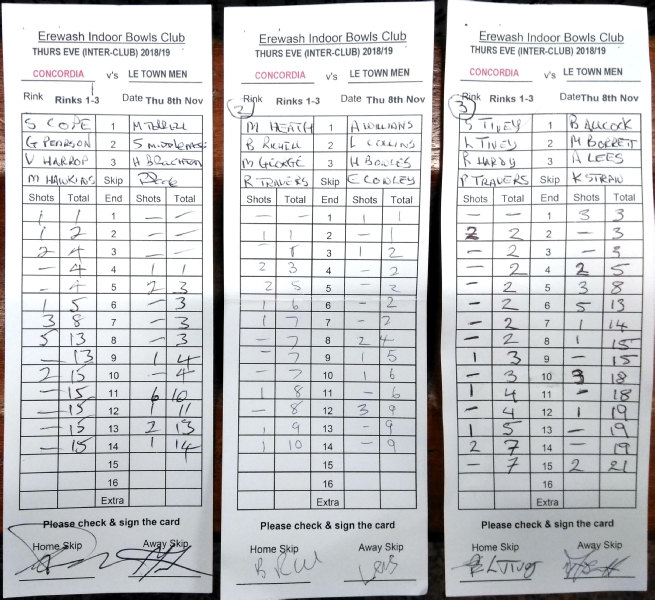 Erewash Indoor Bowls Club
THURS EVE (INTER-CLUB) 2018/19
CONCORDIA v's LE TOWN MEN
Rink Rinks 1-3 Date Thu 8th Nov
S COPE 1
G PEARSON 2
V HARROP 3
M HAWKINS Skip
Shots Total End Shots Total
1 1 1 – –
1 2 2 – –
2 4 3 – –
– 4 4 1 1
– 4 5 2 3
1 5 6 – 3
3 8 7 – 3
5 13 8 – 3
– 13 9 1 4
2 15 10 – 4
– 15 11 6 10
– 15 12 1 11
– 15 13 2 13
– 15 14 1 14
15
16
Extra
Please check & sign the card
Home Skip Away Skip
Erewash Indoor Bowls Club
THURS EVE (INTER-CLUB) 2018/19
CONCORDIA v's LE TOWN MEN
Rink 2 Rinks 1-3 Date Thu 8th Nov
M HEATH 1 A WILLIANS
B 2 L COLLINS
M GEORGE 3 H BOWLES
R TRAVERS Skip E COWLEY
Shots Total End Shots Total
– – 1 1 1
1 1 2 – 1
1 3 1 2
2 3 4 – 2
2 5 5 – 2
1 6 6 – 2
1 7 7 – 2
– 7 8 2 4
– 7 9 1 5
– 7 10 1 6
1 8 11 – 6
– 8 12 3 9
1 9 13 – 9
1 10 14 – 9
15
16
Extra
Please check & sign the card
Home Skip Away Skip
Erewash Indoor Bowls Club
THURS EVE (INTER-CLUB) 2018/19
CONCORDIA v's LE TOWN MEN
Rink 3 Rinks 1-3 Date Thu 8th Nov
S TIVEY 1 B ALLCOCK
L TIVEY 2 M BORRETT
R HARDY 3 A LEES
P TRAVERS Skip K STRAW
Shots Total End Shots Total
– – 1 3 3
2 2 2 – 3
– 2 3 – 3
– 2 4 2 5
– 2 5 3 8
– 2 6 5 13
– 2 7 1 14
– 2 8 1 15
1 3 9 – 15
– 3 10 3 18
1 4 11 – 18
– 4 12 1 19
1 5 13 – 19
2 7 14 – 19
– 7 15 2 21
16
Extra
Please check & sign the card
Home Skip Away Skip